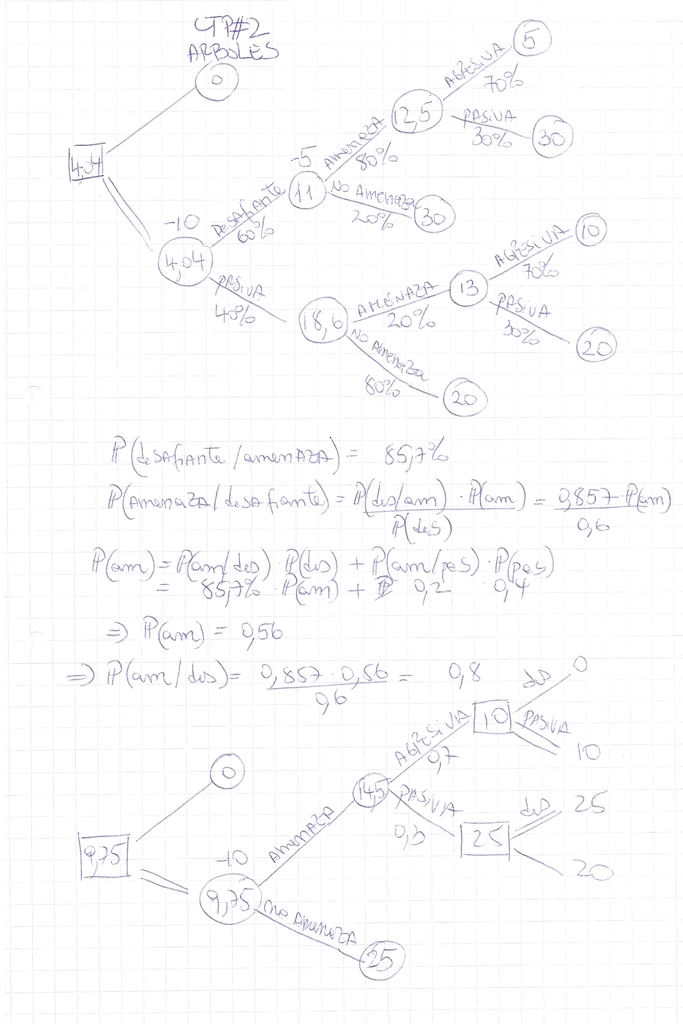 GTP#2
ARBOLES
0
4,04
-10
4,04
DESAFIANTE
60%
PASIVA
40%
-5
11
AMENAZA
80%
NO AMENAZA
20%
30
12,5
AGRESIVA
70%
5
PASIVA
30%
30
18,6
AMENAZA
20%
NO AMENAZA
80%
20
13
AGRESIVA
70%
10
PASIVA
30%
20
P(desafiante/amenaza) = 85,7%
P(Amenaza/desafiante) = P(des/am) · P(am) / P(des) = 0,857 · P(am) / 0,6
P(am) = P(am/des) · P(des) + P(am/pas) · P(pas)
= 85,7% · P(am) + 0,2 0,4
⇒ P(am) = 0,56
⇒ P(am/des) = 0,857 · 0,56 / 0,6 = 0,8
0
9,75
-10
9,75
AMENAZA
NO AMENAZA
25
14,5
AGRESIVA
0,7
PASIVA
0,3
10
des
0
PASIVA
10
25
des
25
20